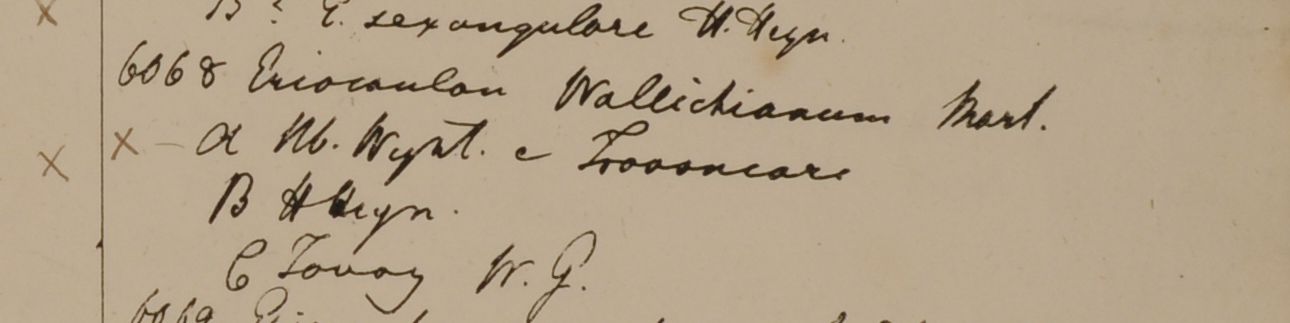 B? E. sexangulare H. Heyn.
6068 Eriocaulon Wallichianum Mart.
x x a Hb. Wight. e Travancore
B H Heyn.
C Tavoy W. G.
6069